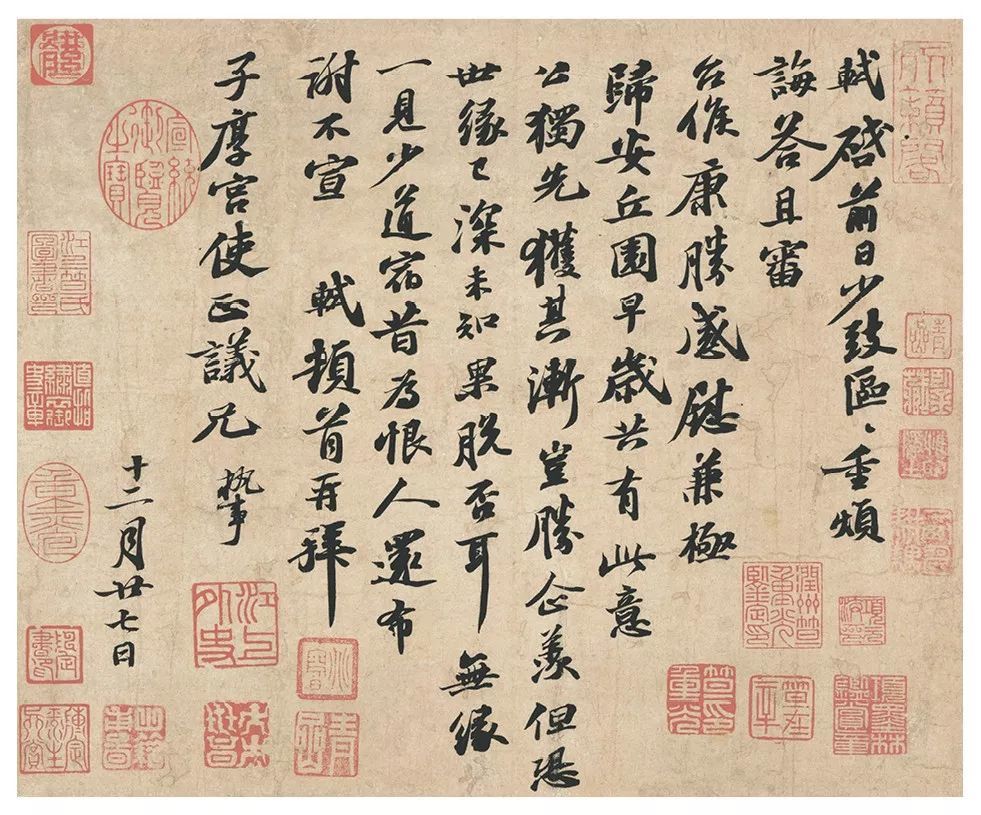 軾啓前日少致區〻重煩
誨答且審
台候康勝感慰兼極
歸安丘園早歲共有此意
公獨先獲其漸豈勝企羨但恐
世緣已深未知果脫否耳無緣
一見少道宿昔為恨人還布
謝不宣 軾頓首再拜
子厚宮使正議兄 執事
十二月廿七日
宣統
御覽
之寶
江上
外史